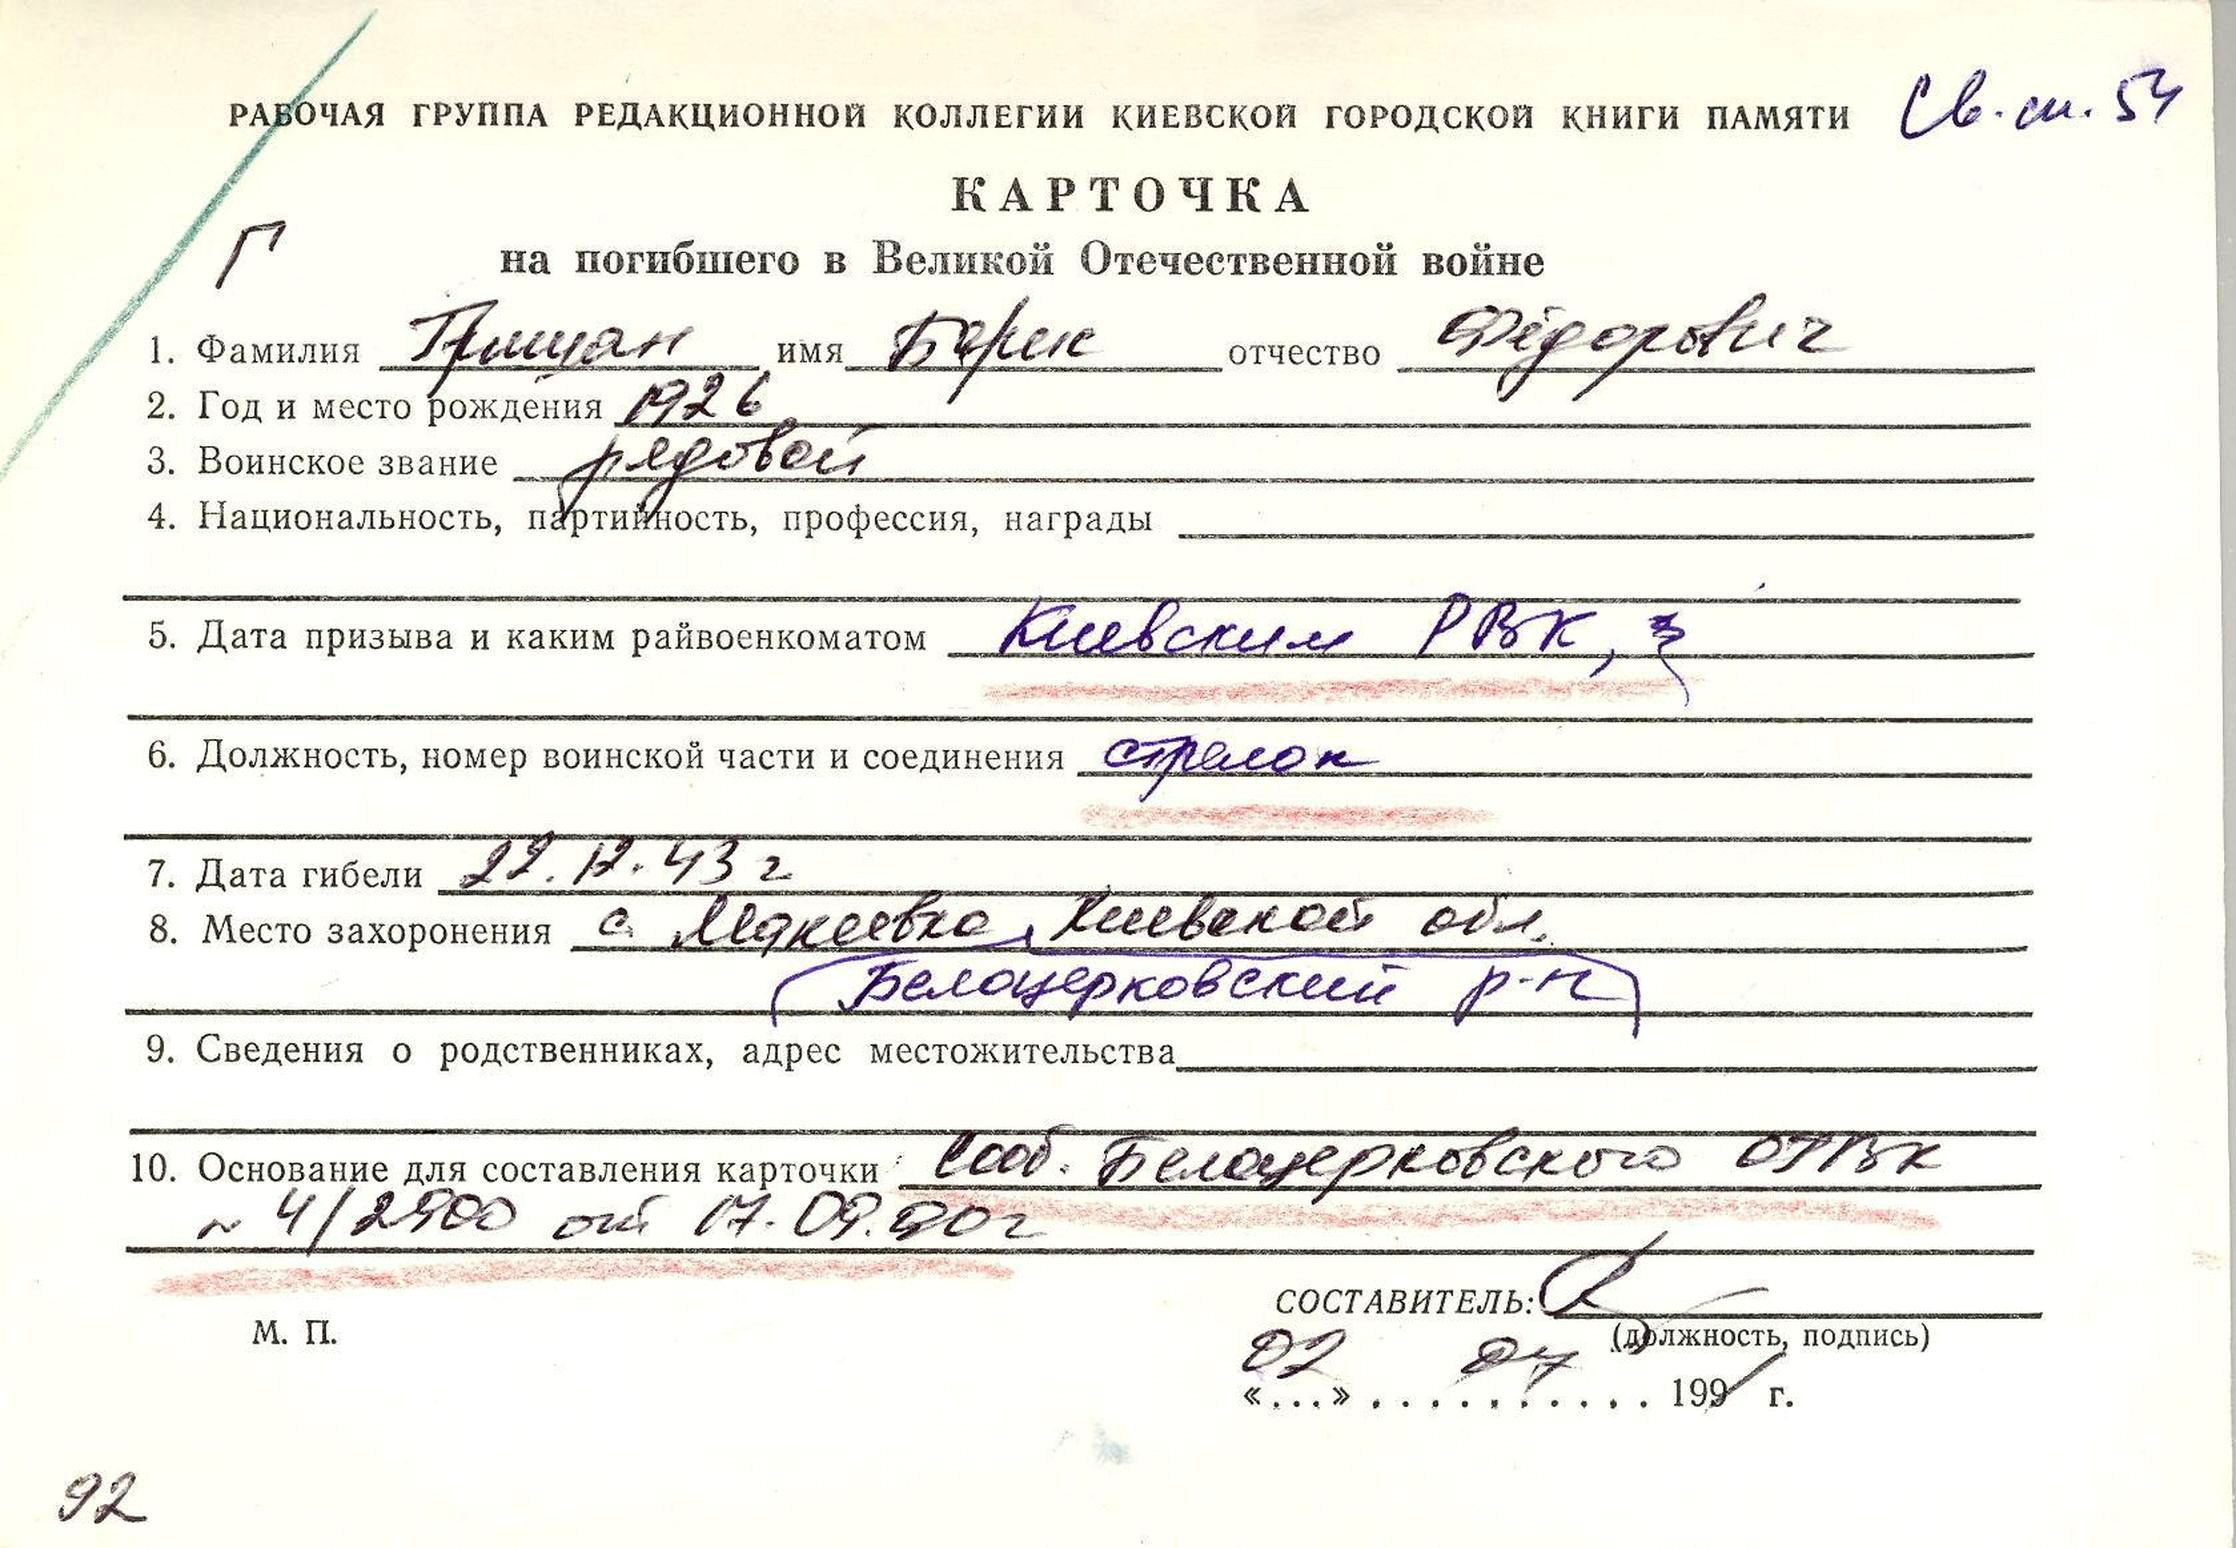 РАБОЧАЯ ГРУППА РЕДАКЦИОННОЙ КОЛЛЕГИИ КИЕВСКОЙ ГОРОДСКОЙ КНИГИ ПАМЯТИ Св. сп. 54
КАРТОЧКА
Г на погибшего в Великой Отечественной войне
1. Фамилия Грищан имя Борис отчество Фёдорович
2. Год и место рождения 1926
3. Воинское звание рядовой
4. Национальность, партийность, профессия, награды
5. Дата призыва и каким райвоенкоматом Киевским РВК,
6. Должность, номер воинской части и соединения стрелок
7. Дата гибели 22.12.43 г
8. Место захоронения с. Макеевка, Киевской обл.
Белоцерковский р-н
9. Сведения о родственниках, адрес местожительства
10. Основание для составления карточки Сооб. Белоцерковского ОГВК
№ 4/2900 от 17.09.90 г
СОСТАВИТЕЛЬ:
М. П. (должность, подпись)
02 04
«...» . . . . . . . . . . 1991 г.
92